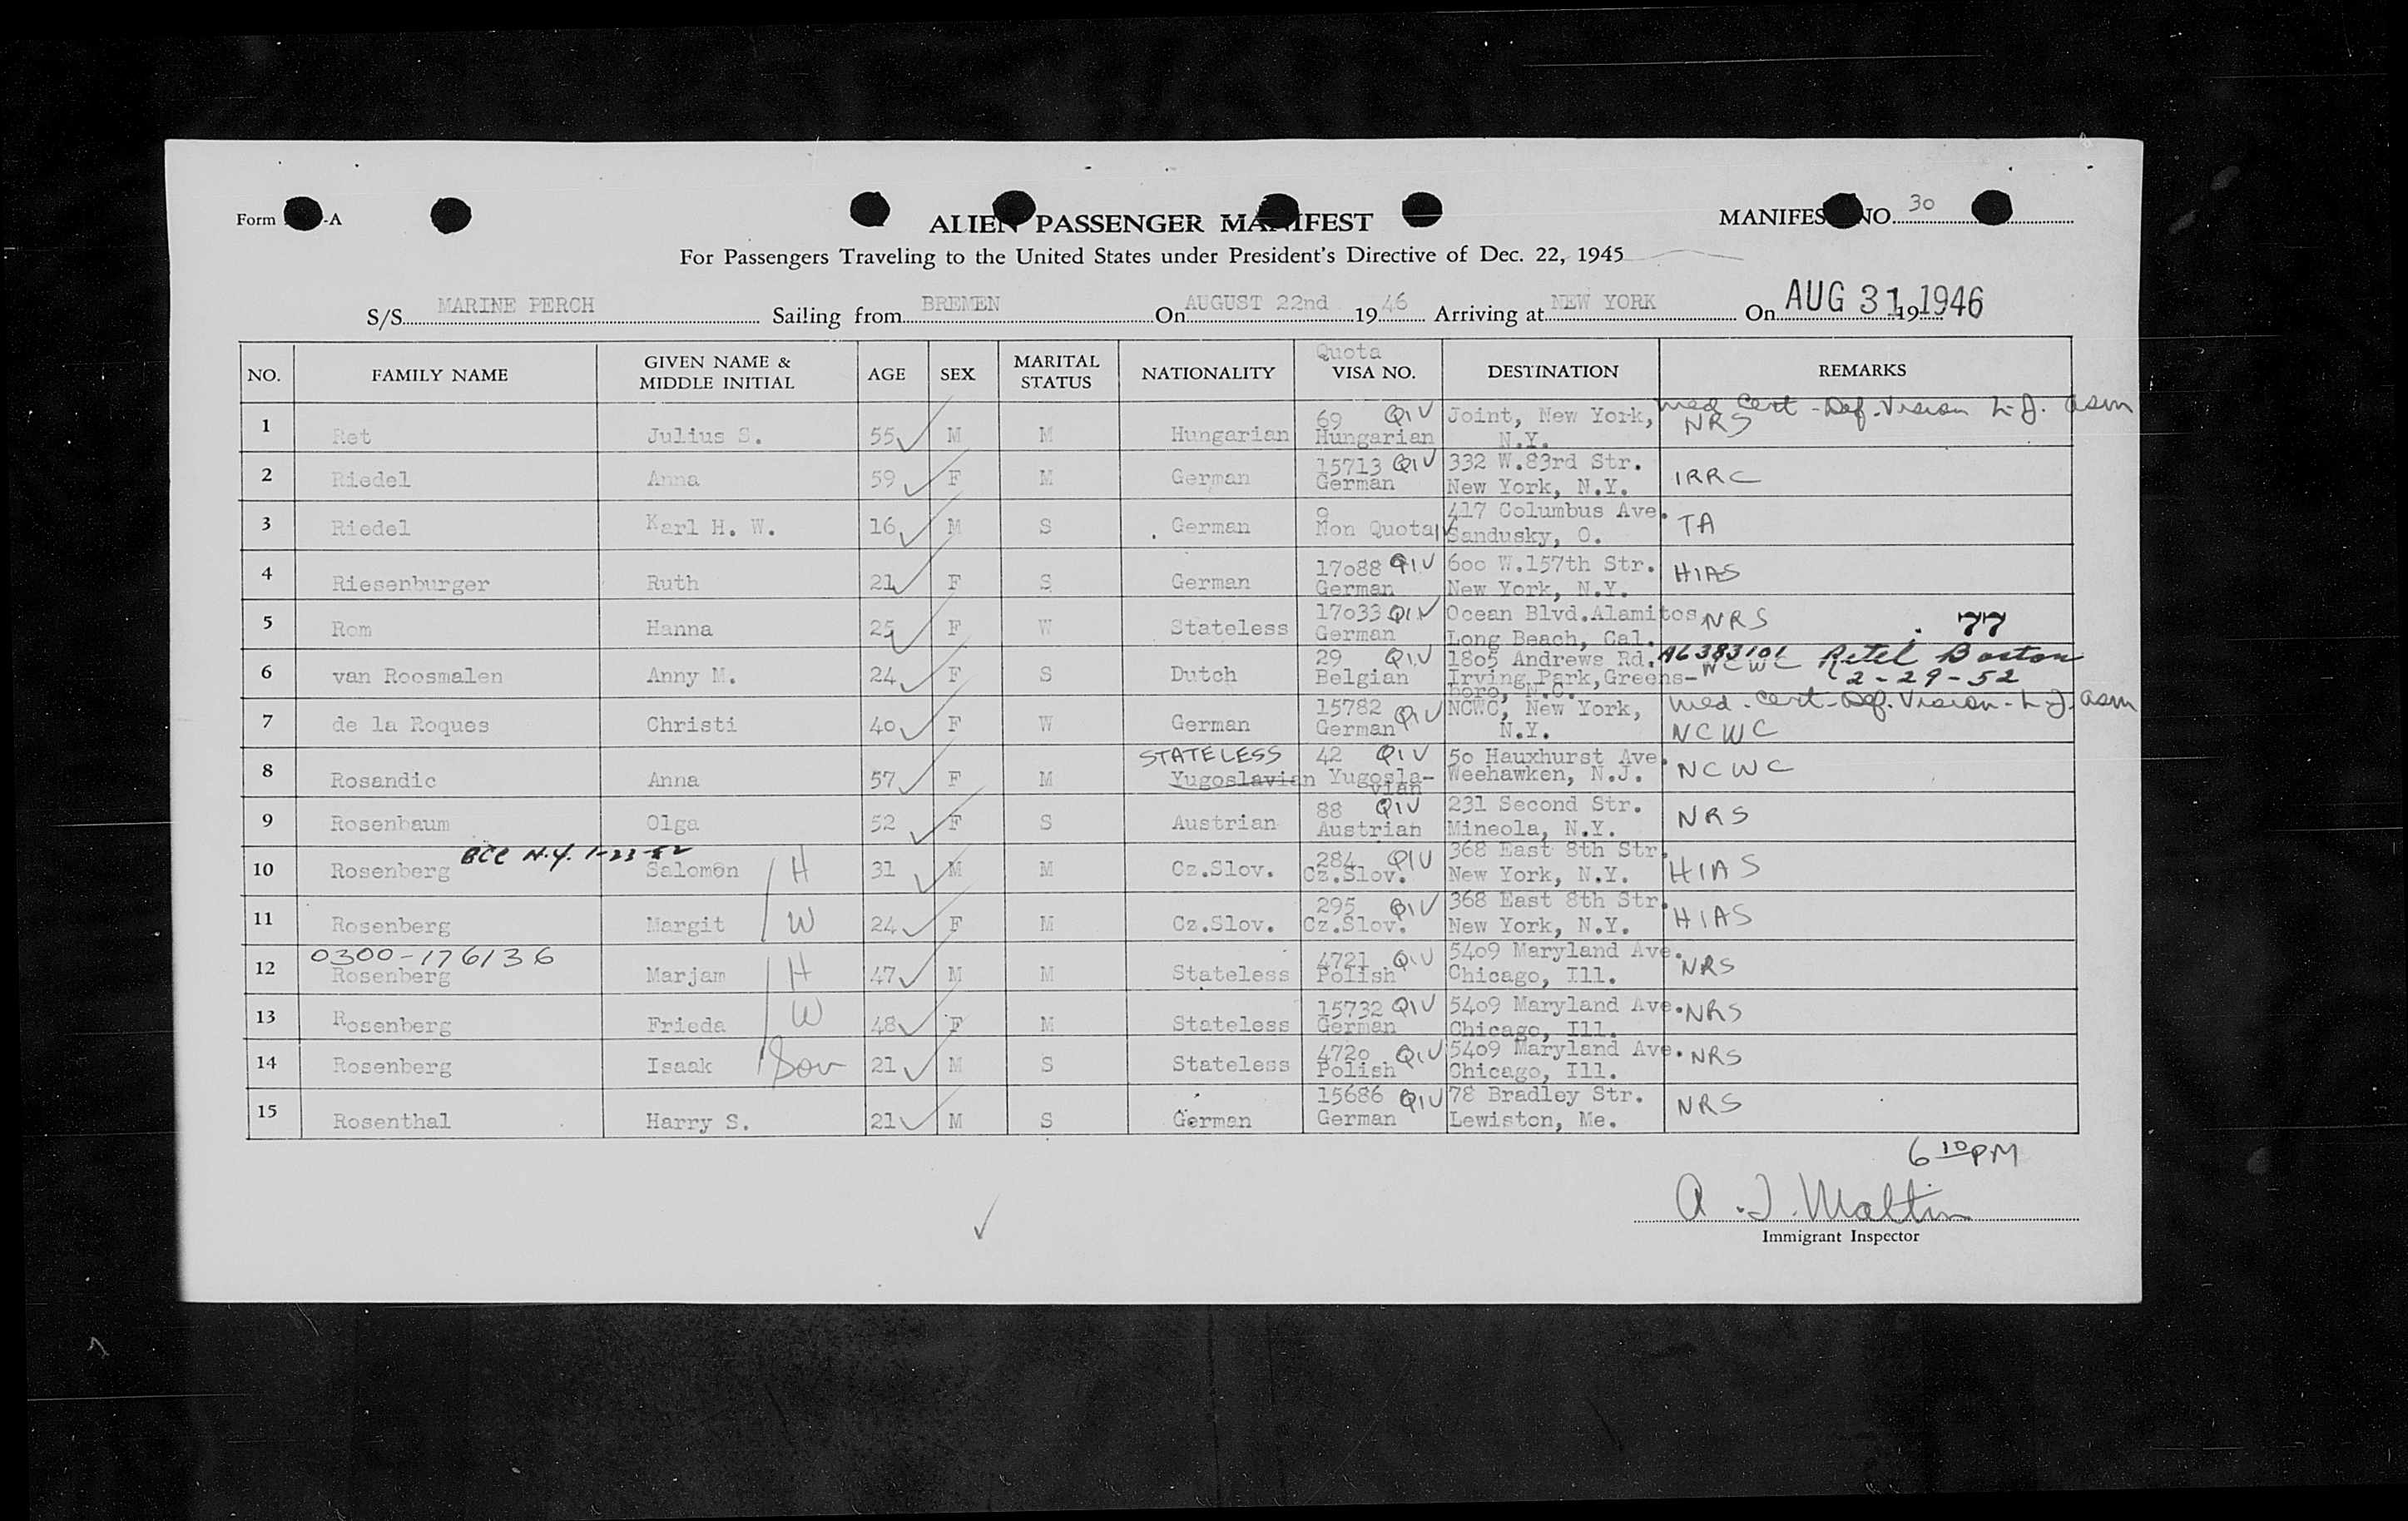 Form -A
ALIEN PASSENGER MANIFEST
MANIFEST NO. 30
For Passengers Traveling to the United States under President's Directive of Dec. 22, 1945
S/S MARINE PERCH Sailing from BREMEN On AUGUST 22nd 1946 Arriving at NEW YORK On AUG 31 1946 19
NO. FAMILY NAME GIVEN NAME & MIDDLE INITIAL AGE SEX MARITAL STATUS NATIONALITY Quota VISA NO. DESTINATION REMARKS
1 Ret Julius S. 55 M M Hungarian 69 QIV Hungarian Joint, New York, N.Y. Med Cert - Def. Vision L.J. asm NRS
2 Riedel Anna 59 F M German 15713 QIV German 332 W.83rd Str. New York, N.Y. IRRC
3 Riedel Karl H. W. 16 M S German 9 Non Quota IV 417 Columbus Ave. Sandusky, O. TA
4 Riesenburger Ruth 21 F S German 17088 QIV German 600 W.157th Str. New York, N.Y. HIAS
5 Rom Hanna 25 F W Stateless 17033 QIV German Ocean Blvd.Alamitos Long Beach, Cal. NRS 77
6 van Roosmalen Anny M. 24 F S Dutch 29 QIV Belgian 1805 Andrews Rd. Irving Park, Greensboro, N.C. A6383101 NCWC Retel Boston 2-29-52
7 de la Roques Christi 40 F W German 15782 QIV German NCWC, New York, N.Y. Med. Cert - Def. Vision - L.J. asm NCWC
8 Rosandic Anna 57 F M STATELESS Yugoslavian 42 QIV Yugosla-vian 50 Hauxhurst Ave. Weehawken, N.J. NCWC
9 Rosenbaum Olga 52 F S Austrian 88 QIV Austrian 231 Second Str. Mineola, N.Y. NRS
BCC N.Y. 1-23-52
10 Rosenberg Salomon H 31 M M Cz.Slov. 284 QIV Cz.Slov. 368 East 8th Str. New York, N.Y. HIAS
11 Rosenberg Margit W 24 F M Cz.Slov. 295 QIV Cz.Slov. 368 East 8th Str. New York, N.Y. HIAS
0300-176136
12 Rosenberg Marjam H 47 M M Stateless 4721 QIV Polish 5409 Maryland Ave. Chicago, Ill. NRS
13 Rosenberg Frieda W 48 F M Stateless 15732 QIV German 5409 Maryland Ave. Chicago, Ill. NRS
14 Rosenberg Isaak Son 21 M S Stateless 4720 QIV Polish 5409 Maryland Ave. Chicago, Ill. NRS
15 Rosenthal Harry S. 21 M S German 15686 QIV German 78 Bradley Str. Lewiston, Me. NRS
6 10 PM
A. J. Maltin
Immigrant Inspector